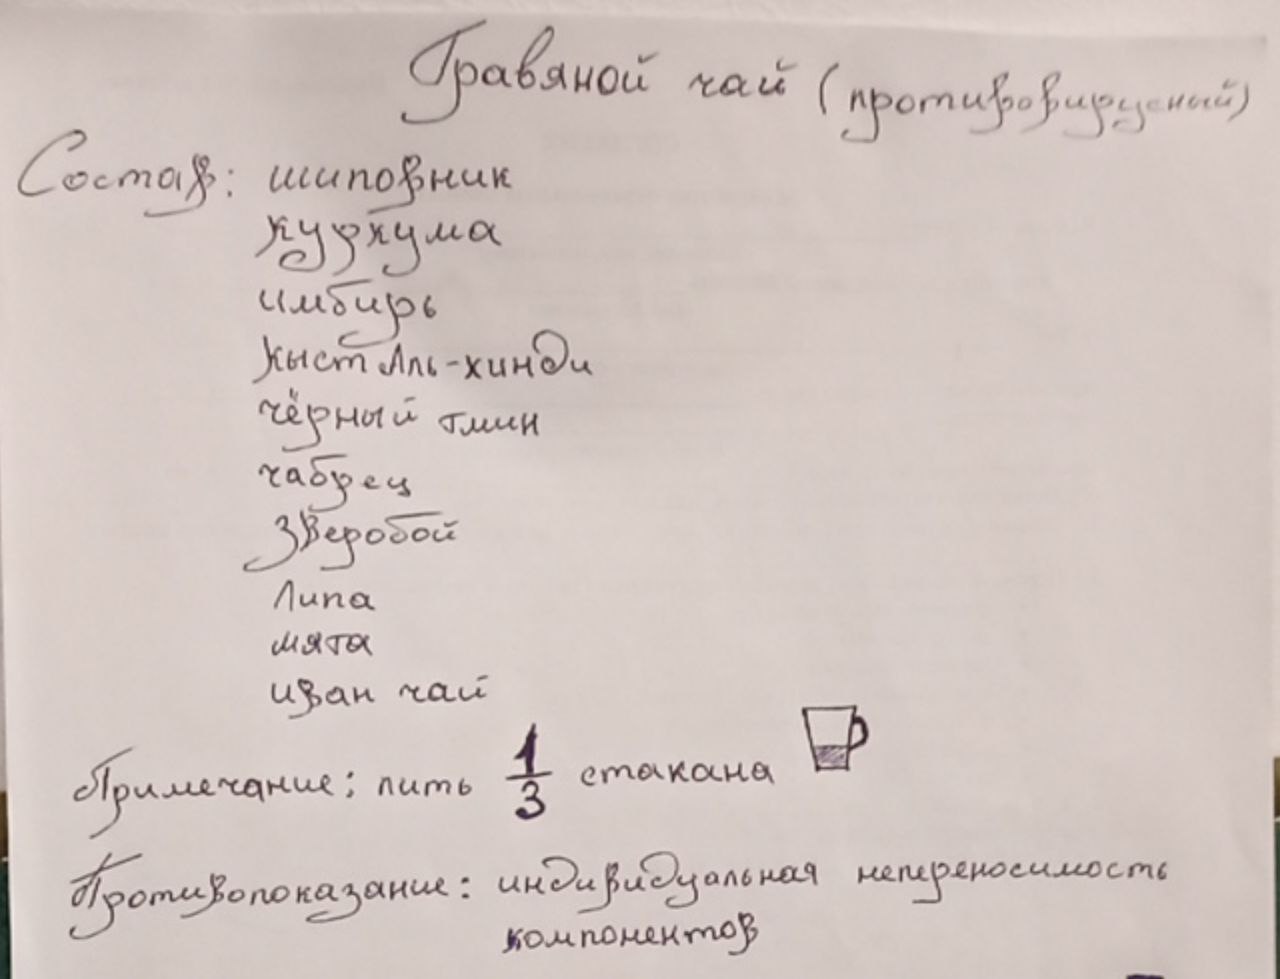 Травяной чай (противовирусный)
Состав: шиповник
куркума
имбирь
кыст Аль-хинди
чёрный тмин
чабрец
зверобой
липа
мята
иван чай
Примечание: пить 1/3 стакана
Противопоказание: индивидуальная непереносимость
компонентов